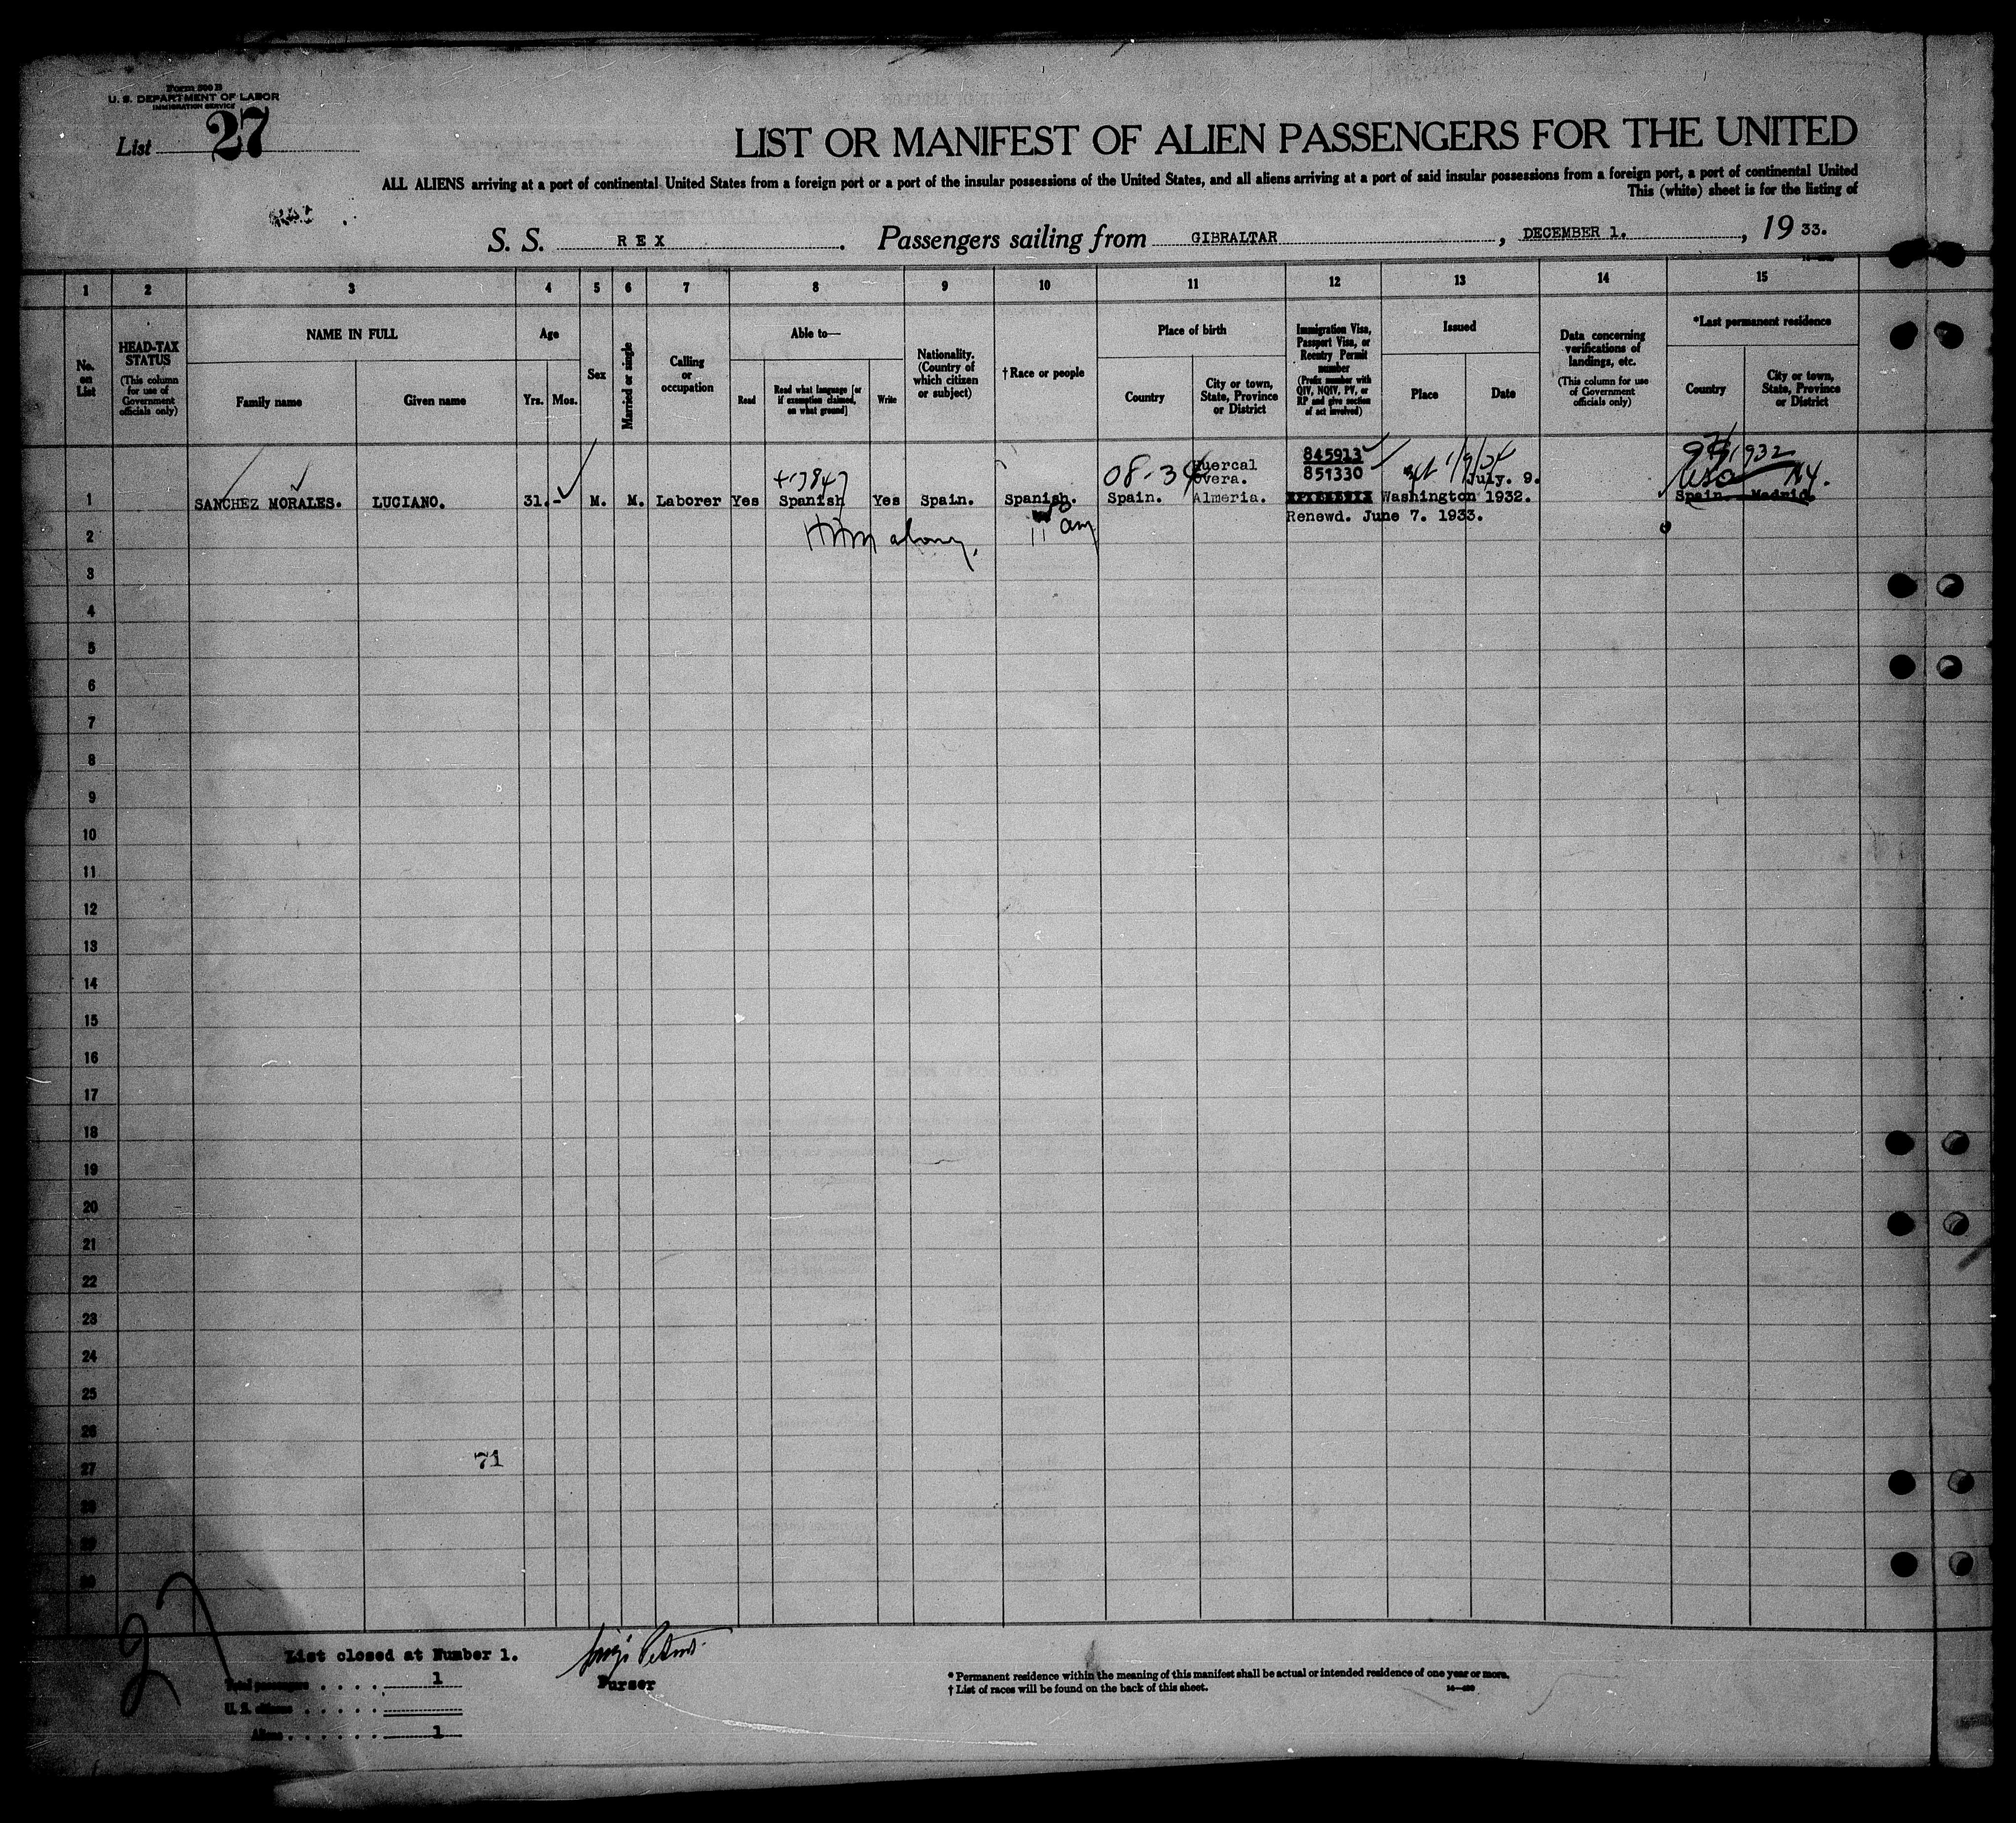 Form 500 B
U. S. DEPARTMENT OF LABOR
IMMIGRATION SERVICE
List 27
LIST OR MANIFEST OF ALIEN PASSENGERS FOR THE UNITED
ALL ALIENS arriving at a port of continental United States from a foreign port or a port of the insular possessions of the United States, and all aliens arriving at a port of said insular possessions from a foreign port, a port of continental United
This (white) sheet is for the listing of
S. S. REX. Passengers sailing from GIBRALTAR, DECEMBER 1., 19 33.
1 2 3 4 5 6 7 8 9 10 11 12 13 14 15
No. on List
HEAD-TAX STATUS (This column for use of Government officials only)
NAME IN FULL
Family name
Given name
Age
Yrs. Mos.
Sex
Married or single
Calling or occupation
Able to—
Read
Read what language [or if exemption claimed, on what ground]
Write
Nationality. (Country of which citizen or subject)
†Race or people
Place of birth
Country
City or town, State, Province or District
Immigration Visa, Passport Visa, or Reentry Permit number (Prefix number with QIV, NQIV, PV, or RP and give section of act involved)
Issued
Place
Date
Data concerning verifications of landings, etc. (This column for use of Government officials only)
*Last permanent residence
Country
City or town, State, Province or District
845913
08-34 Huercal Overa. 851330 July. 9. USA N.Y.
1 SANCHEZ MORALES. LUCIANO. 31.- M. M. Laborer Yes Spanish Yes Spain. Spanish. Spain. Almeria. Washington 1932. Spain. Madrid.
Renewd. June 7. 1933.
2
3
4
5
6
7
8
9
10
11
12
13
14
15
16
17
18
19
20
21
22
23
24
25
26
71
27
28
29
30
27
List closed at Number 1.
Total passengers . . . . . 1
Purser
U. S. citizens . . . . . .
Aliens . . . . . . 1
* Permanent residence within the meaning of this manifest shall be actual or intended residence of one year or more.
† List of races will be found on the back of this sheet.